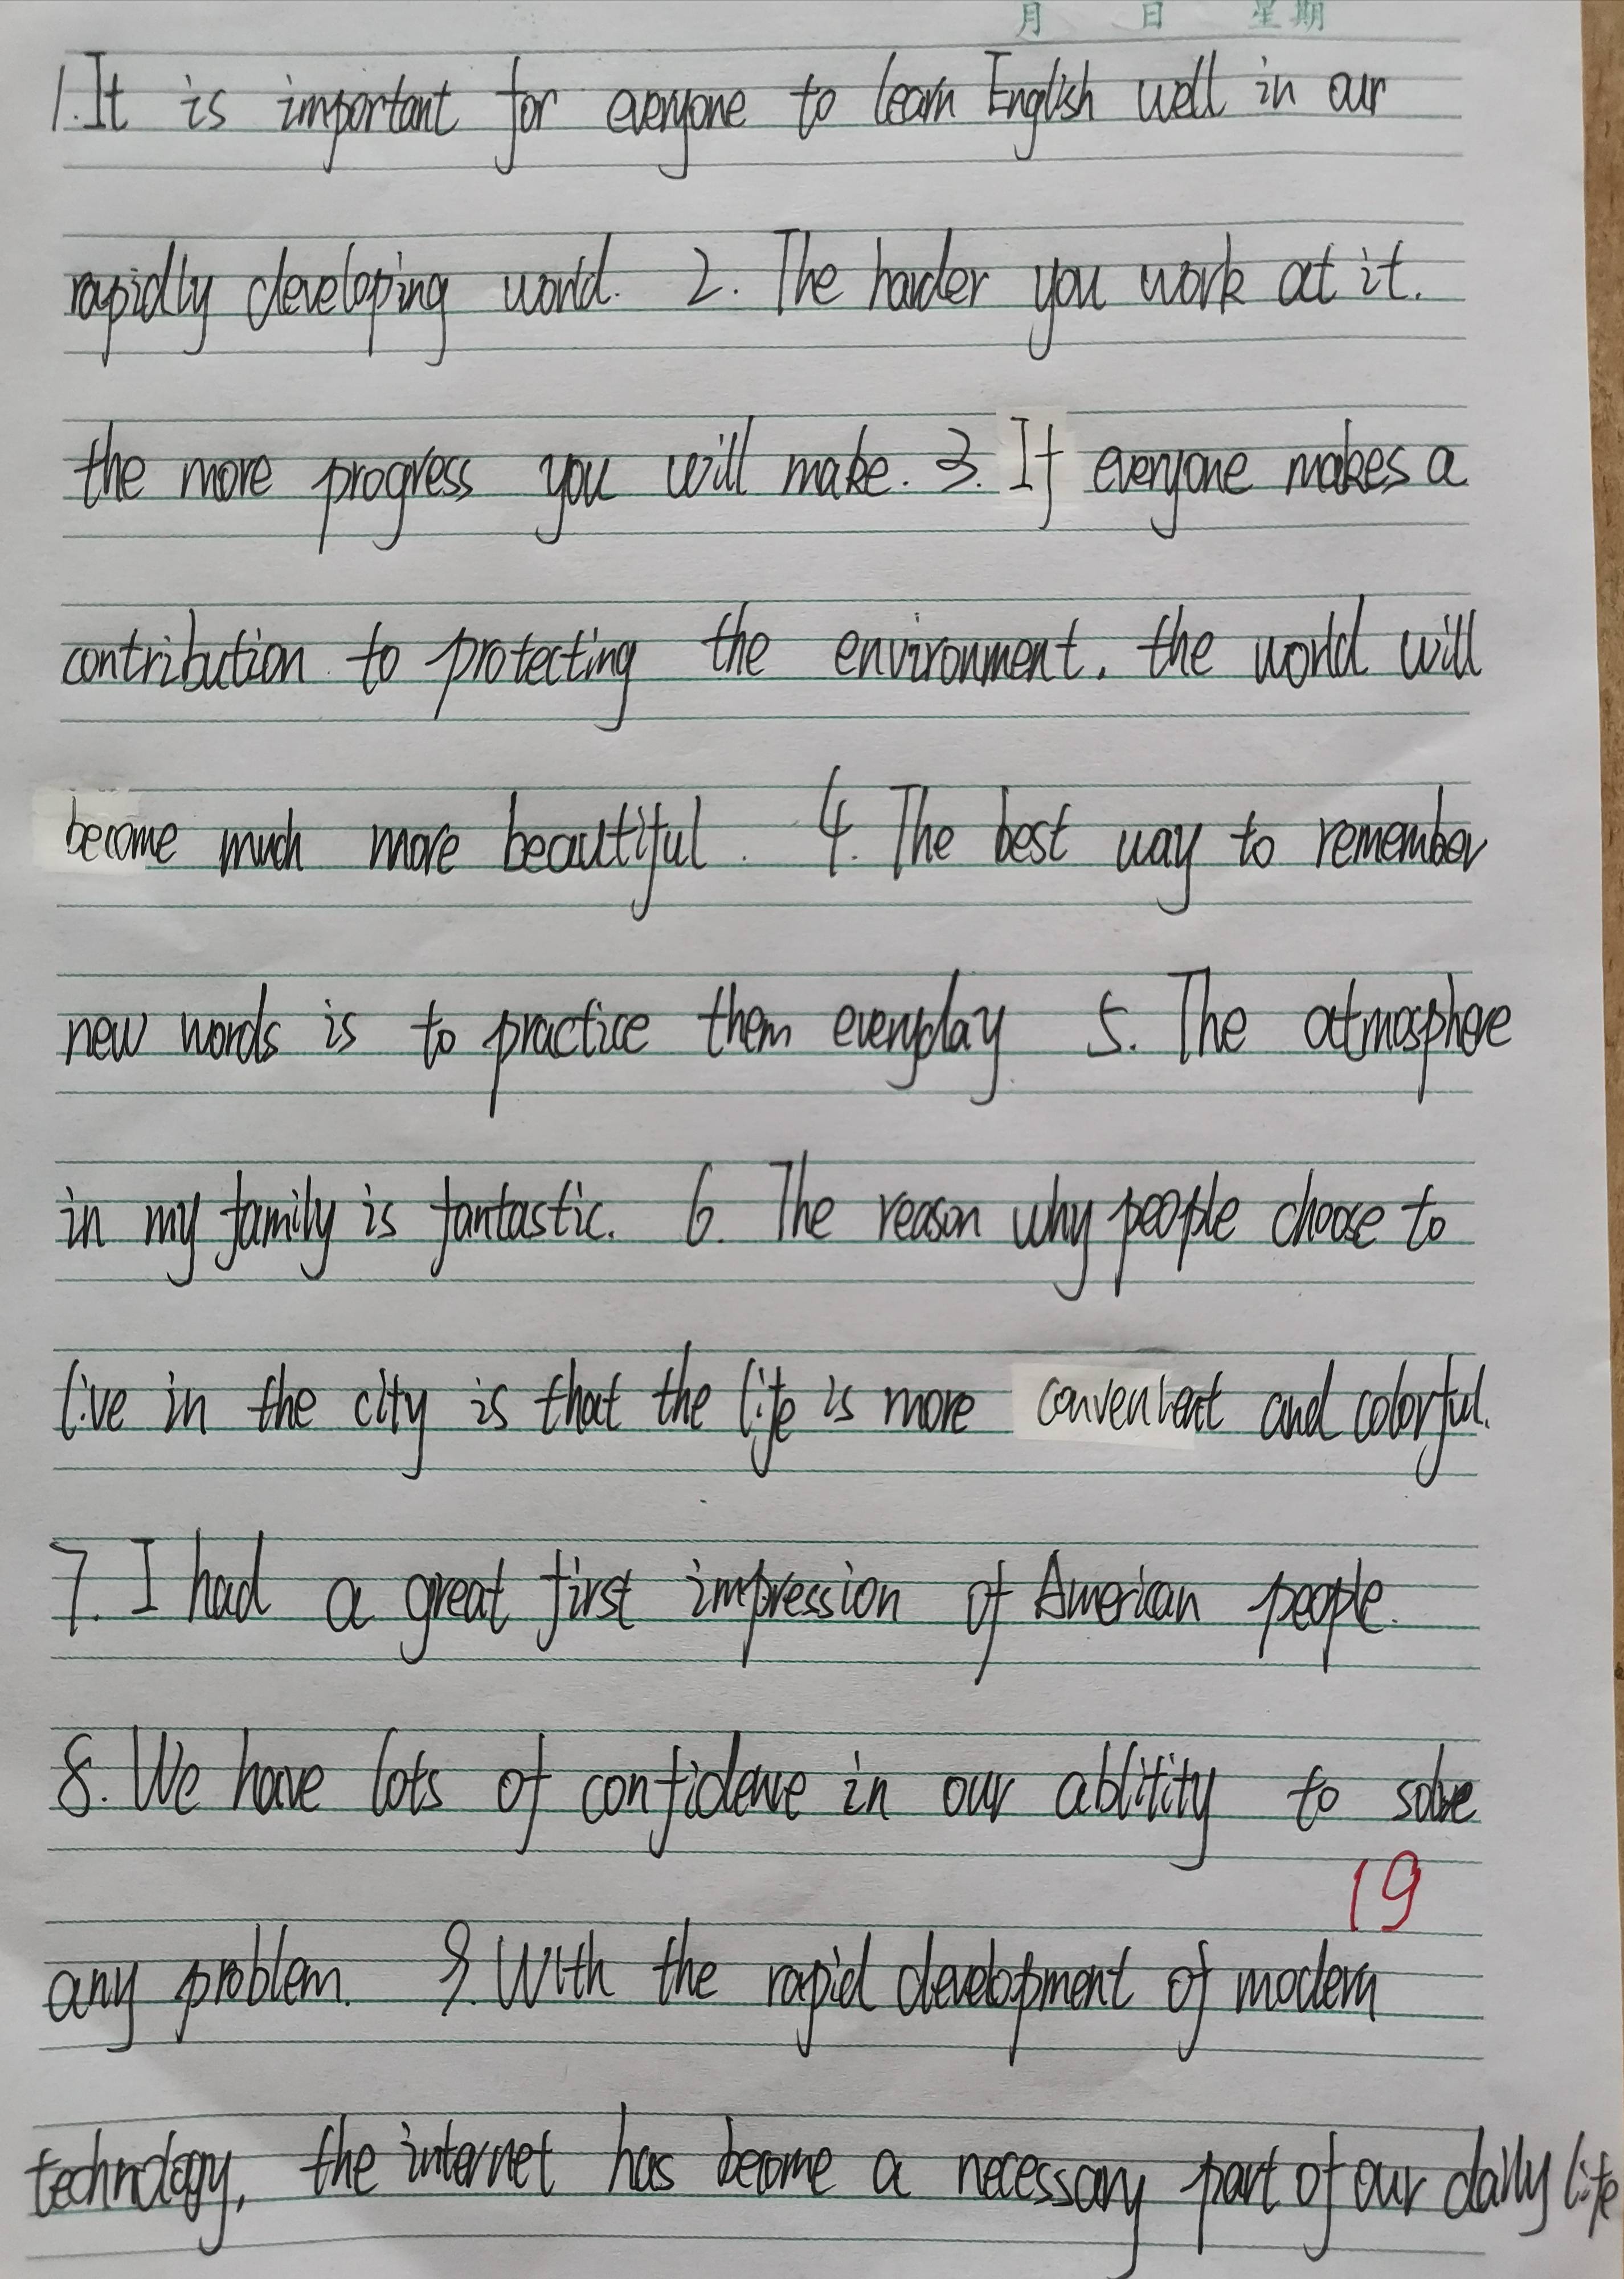 月 日 星期
1. It is important for everyone to learn English well in our
rapidly developing world. 2. The harder you work at it.
the more progress you will make. 3. If everyone makes a
contribution to protecting the environment. the world will
become much more beautiful. 4. The best way to remember
new words is to practice them everyday 5. The atmosphere
in my family is fantastic. 6. The reason why people choose to
live in the city is that the life is more convenient and colorful.
7. I had a great first impression of American people.
8. We have lots of confidence in our ablitity to solve
19
any problem. 9. With the rapid development of modern
technology, the internet has become a necessary part of our daily life